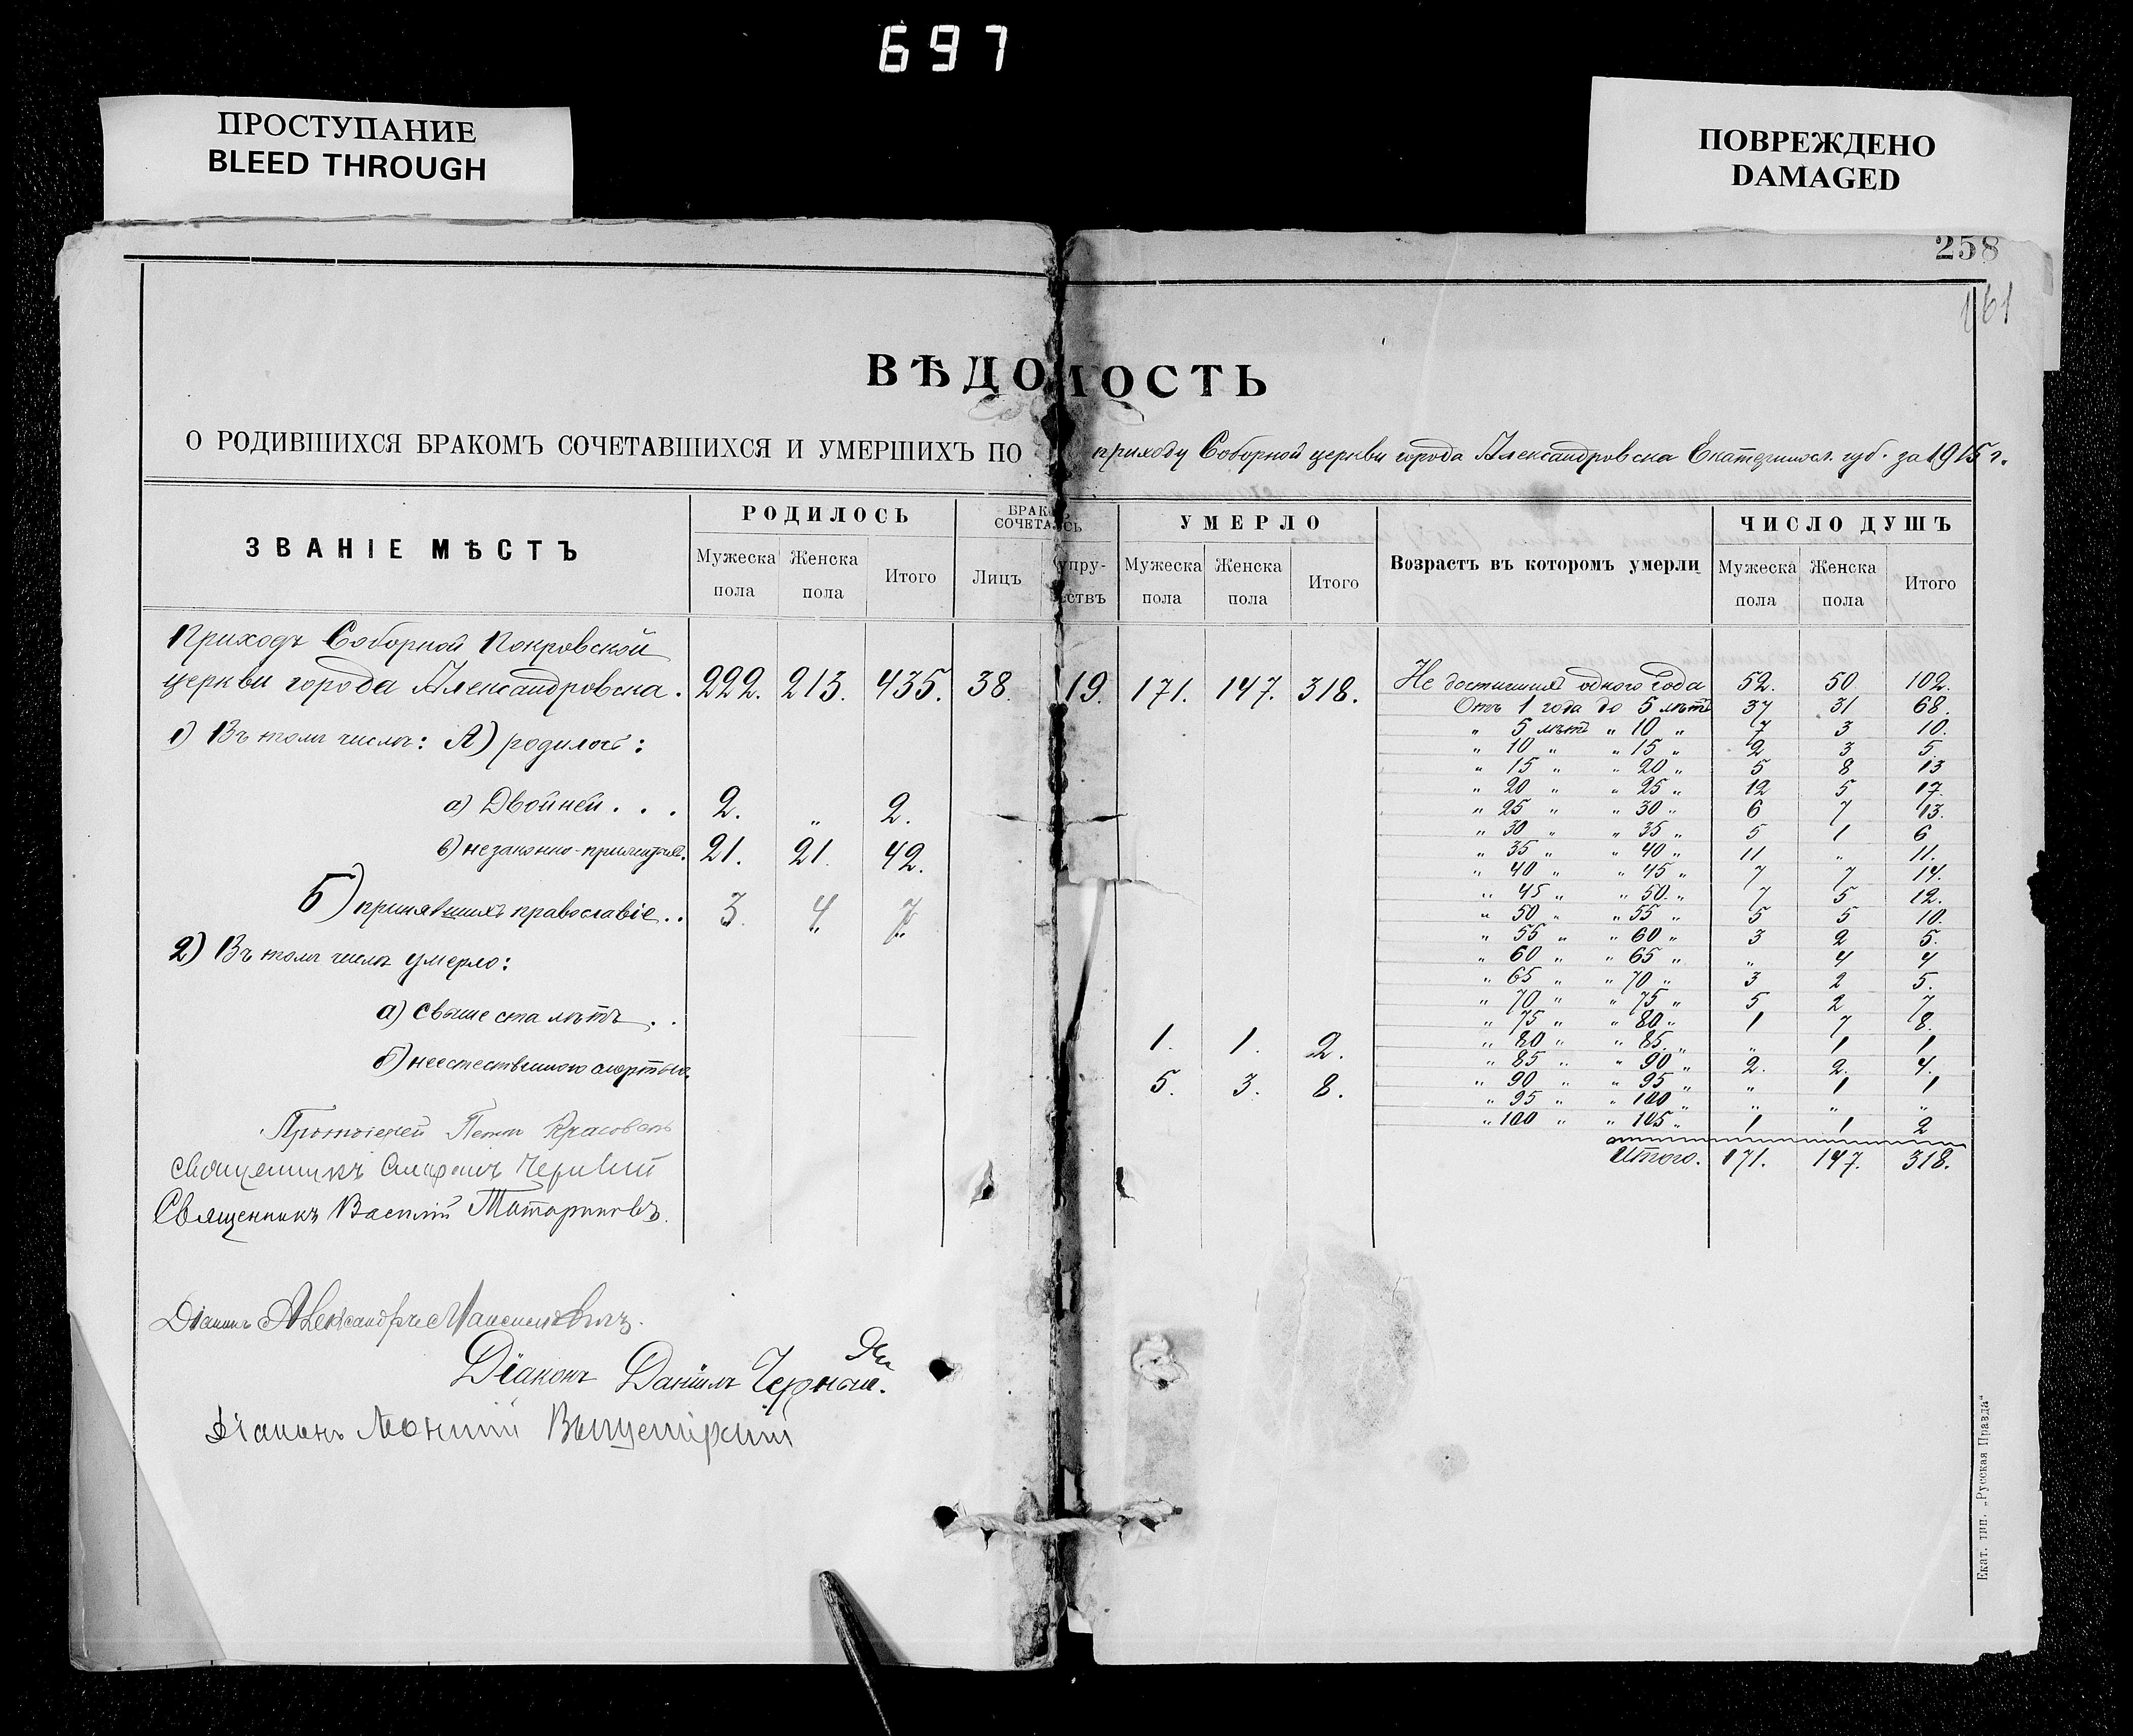 697
ПРОСТУПАНИЕ
BLEED THROUGH
ПОВРЕЖДЕНО
DAMAGED
258
161
ВѢДОМОСТЬ
О РОДИВШИХСЯ БРАКОМЪ СОЧЕТАВШИХСЯ И УМЕРШИХЪ ПО приходу Соборной церкви города Александровска Екатериносл. губ. за 1915 г.
ЗВАНІЕ МѢСТЪ
РОДИЛОСЬ
Мужеска пола Женска пола Итого
БРАКОМЪ СОЧЕТАЛОСЬ
Лицъ Супружествъ
УМЕРЛО
Мужеска пола Женска пола Итого
Возрастъ въ которомъ умерли
ЧИСЛО ДУШЪ
Мужеска пола Женска пола Итого
Приходъ Соборной Покровской
церкви города Александровска. 222. 213. 435. 38. 19. 171. 147. 318.
1) Въ томъ числѣ: А) родилось:
а) Двойней . . . 2. „ 2.
в) незаконно-прижитыхъ. 21. 21. 42.
Б) принявшихъ православіе . . 3. 4. 7.
2) Въ томъ числѣ умерло:
а) свыше ста лѣтъ . . 1. 1. 2.
б) неестественною смертью. 5. 3. 8.
Не достигшихъ одного года 52. 50 102.
Отъ 1 года до 5 лѣтъ 37 31 68.
„ 5 лѣтъ „ 10 „ 7 3 10.
„ 10 „ „ 15 „ 2 3 5.
„ 15 „ „ 20 „ 5 8 13
„ 20 „ „ 25 „ 12 5 17.
„ 25 „ „ 30 „ 6 7 13.
„ 30 „ „ 35 „ 5 1 6
„ 35 „ „ 40 „ 11 „ 11.
„ 40 „ „ 45 „ 7 7 14.
„ 45 „ „ 50. „ 7 5 12.
„ 50 „ „ 55 „ 5 5 10.
„ 55 „ „ 60 „ 3 2 5.
„ 60 „ „ 65 „ „ 4 4
„ 65 „ „ 70 „ 3 2 5.
„ 70 „ „ 75 „ 5 2 7
„ 75 „ „ 80 „ 1 7 8.
„ 80 „ „ 85. „ „ 1 1
„ 85 „ „ 90 „ 2. 2. 4.
„ 90 „ „ 95 „ „ 1 1
„ 95 „ „ 100 „ „ „ „
„ 100 „ „ 105 „ 1 1 2
Итого. 171. 147. 318.
Протоіерей Петръ
Священникъ
Священникъ Василій
Діаконъ Александръ
Діаконъ Даніилъ
Діаконъ
Екат. тип. „Русская Правда“